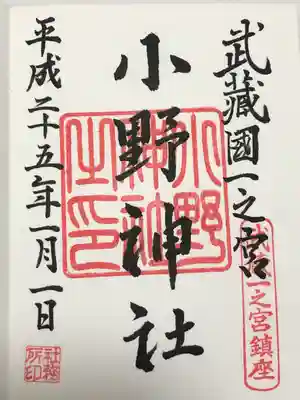 武藏國一之宮
小野神社
平成二十五年一月一日
小野神社之印
武藏一之宮鎮座
社務所印